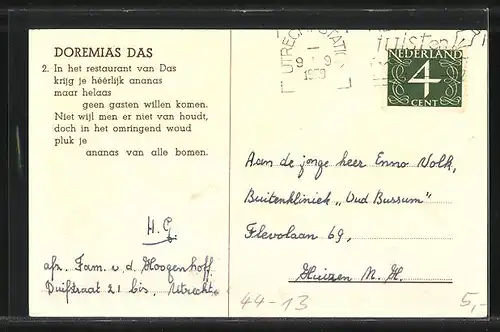 DOREMIAS DAS
2. In het restaurant van Das
krijg je héérlijk ananas
maar helaas
geen gasten willen komen.
Niet wijl men er niet van houdt,
doch in het omringend woud
pluk je
ananas van alle bomen.
H. G.
afz. Fam. v. d. Hoogenhoff.
Duifstraat 21 bis, Utrecht.
UTRECHT STATION
9 9
1959
NEDERLAND
4
CENT
Aan de jonge heer Enno Volk,
Buitenkliniek „Oud Bussum"
Flevolaan 69,
Huizen N. H.
44-13
5,-